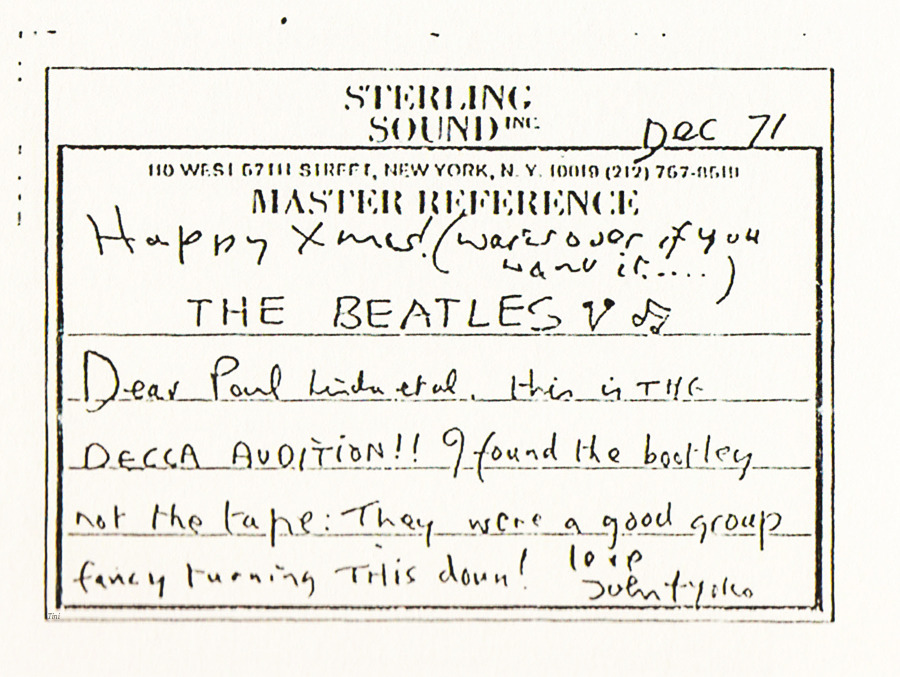 STERLING
SOUND INC.
Dec 71
110 WEST 57TH STREET, NEW YORK, N.Y. 10019 (212) 757-8519
MASTER REFERENCE
Happy Xmas! (war is over if you
want it.....)
THE BEATLES
Dear Paul Linda et al. this is THE
DECCA AUDITION!! I found the bootleg
not the tape: They were a good group
fancy turning THIS down! love
John + Yoko
Tini